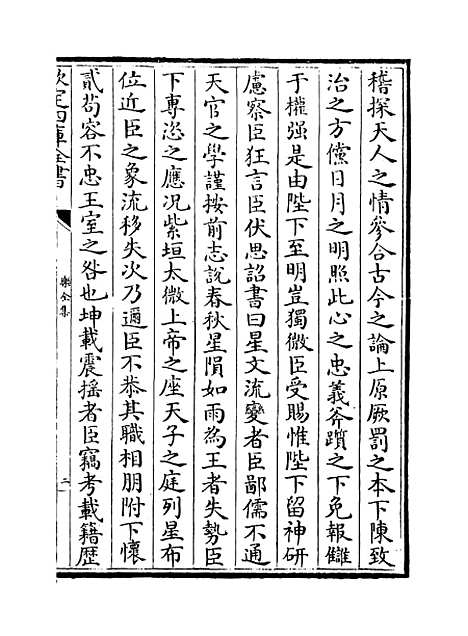 稽探天人之情參合古今之論上原厥罰之本下陳致
治之方儻日月之明照此心之忠義斧躓之下免報讎
于權强是由陛下至明豈獨微臣受賜惟陛下留神研
慮察臣狂言臣伏思詔書曰星文流變者臣鄙儒不通
天官之學謹按前志説春秋星隕如雨為王者失勢臣
下專恣之應况紫垣太微上帝之座天子之庭列星布
位近臣之象流移失次乃邇臣不恭其職相朋附下懷
貳茍容不忠王室之咎也坤載震摇者臣竊考載籍歴
欽定四庫全書
樂全集
二